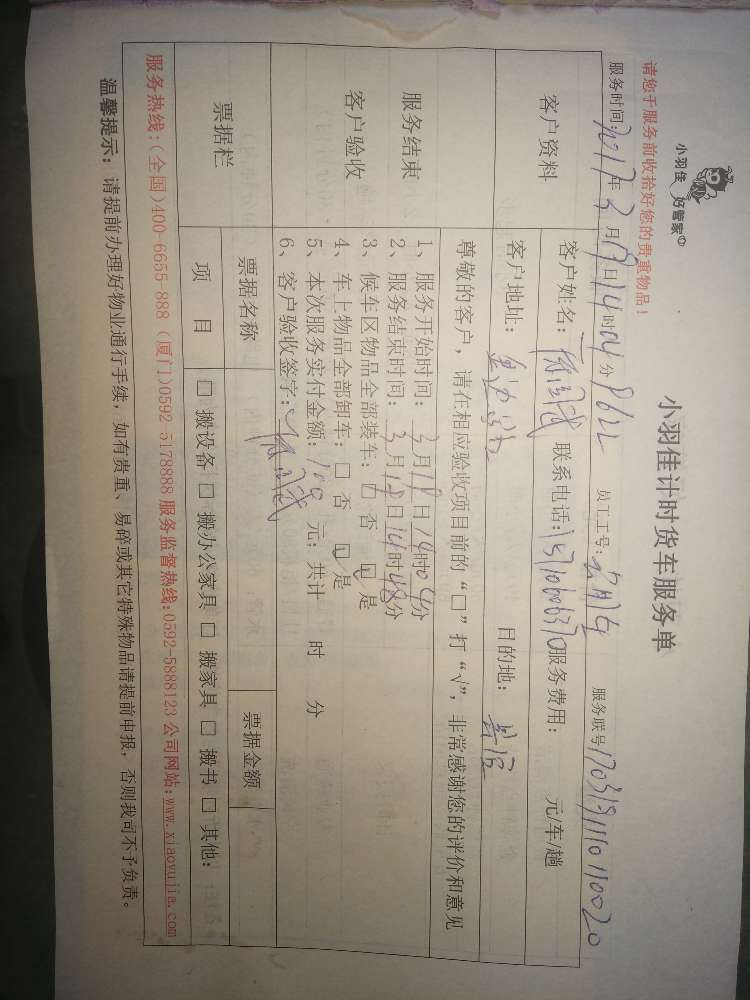 小羽佳 好管家
小羽佳计时货车服务单
请您于服务前收拾好您的贵重物品！
服务时间 2017年3月19日14时04分 8622 员工工号: 服务联号 1703191110110020
客户资料
客户姓名: 联系电话: 15710606370 服务费用: 元/车/趟
客户地址: 目的地:
服务结束
客户验收
尊敬的客户，请在相应验收项目前的“□”打“√”，非常感谢您的评价和意见
1、服务开始时间: 3月19日14时04分
2、服务结束时间: 3月19日14时48分
3、候车区物品全部装车: □ 否 □ 是
4、车上物品全部卸车: □ 否 □ 是
5、本次服务实付金额: 100 元; 共计 时 分
6、客户验收签字:
票据栏
票据名称 票据金额
项 目 □ 搬设备 □ 搬办公家具 □ 搬家具 □ 搬书 □ 其他:
服务热线:(全国)400-6655-888 (厦门)0592-5178888 服务监督热线:0592-5888123 公司网站:www.xiaoyujia.com
温馨提示: 请提前办理好物业通行手续，如有贵重、易碎或其它特殊物品请提前申报，否则我司不予负责。